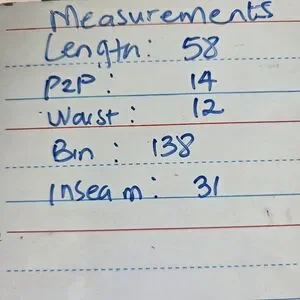 Measurements
Length: 58
P2P: 14
Waist: 12
Bin: 138
Inseam: 31